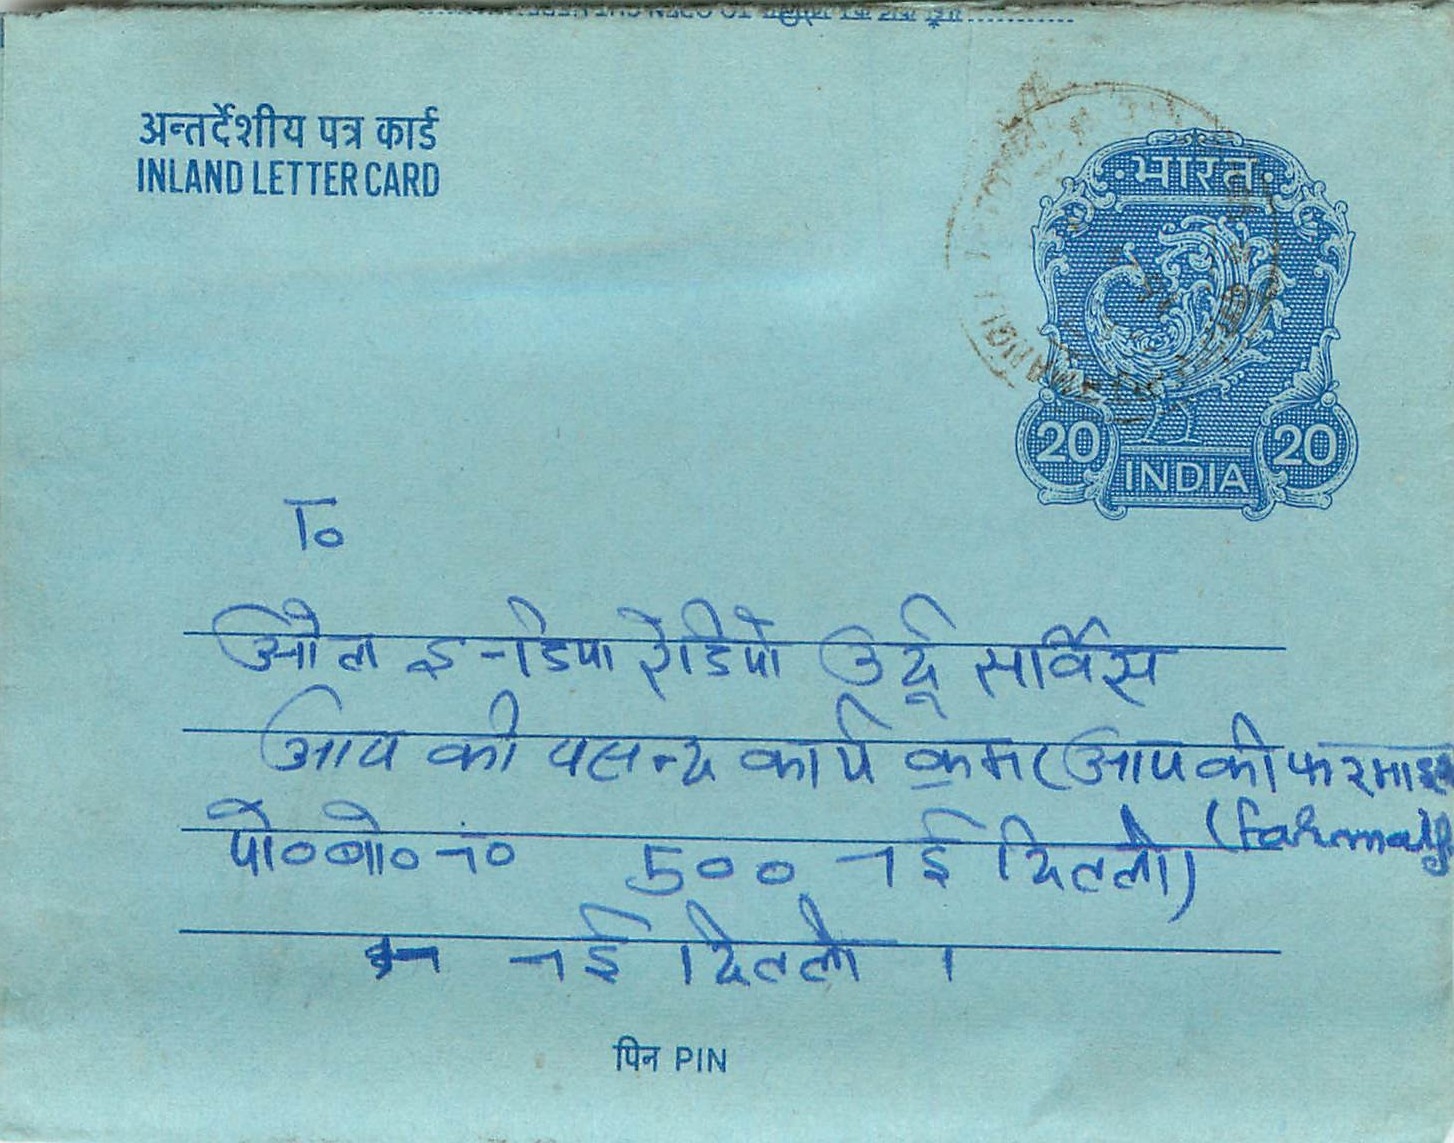 अन्तर्देशीय पत्र कार्ड
INLAND LETTER CARD
भारत
20 20
INDIA
To
ऑल इन्डिया रेडियो उर्दू सर्विस
आप की पसन्द कार्य क्रम (आप की फरमाइश
पो० बो० नं० 500 नई दिल्ली)
नई दिल्ली ।
पिन PIN